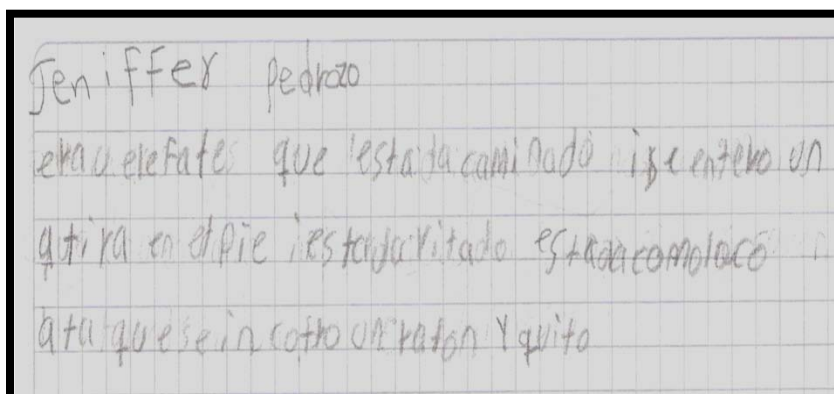 Jeniffer pedrozo
erau elefate que estada caminado ise entero un
atira en el pie iestada ritado estadacomoloco i
ata que se in cotro un raton y quito